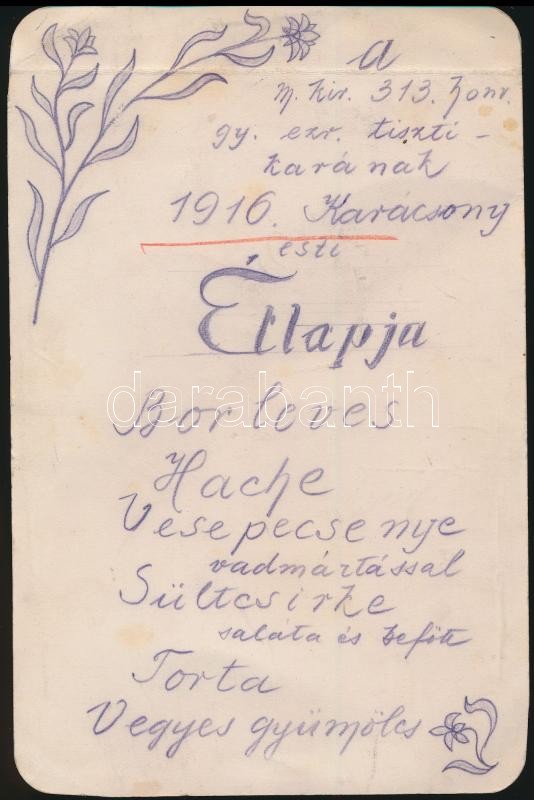 a
m. kir. 313. honv.
gy. ezr. tiszti-
karának
1916. Karácsony
esti
Étlapja
darabanth
Borleves
Hache
Vesepecsenye
vadmártással
Sültcsirke
saláta és befőtt
Torta
Vegyes gyümölcs